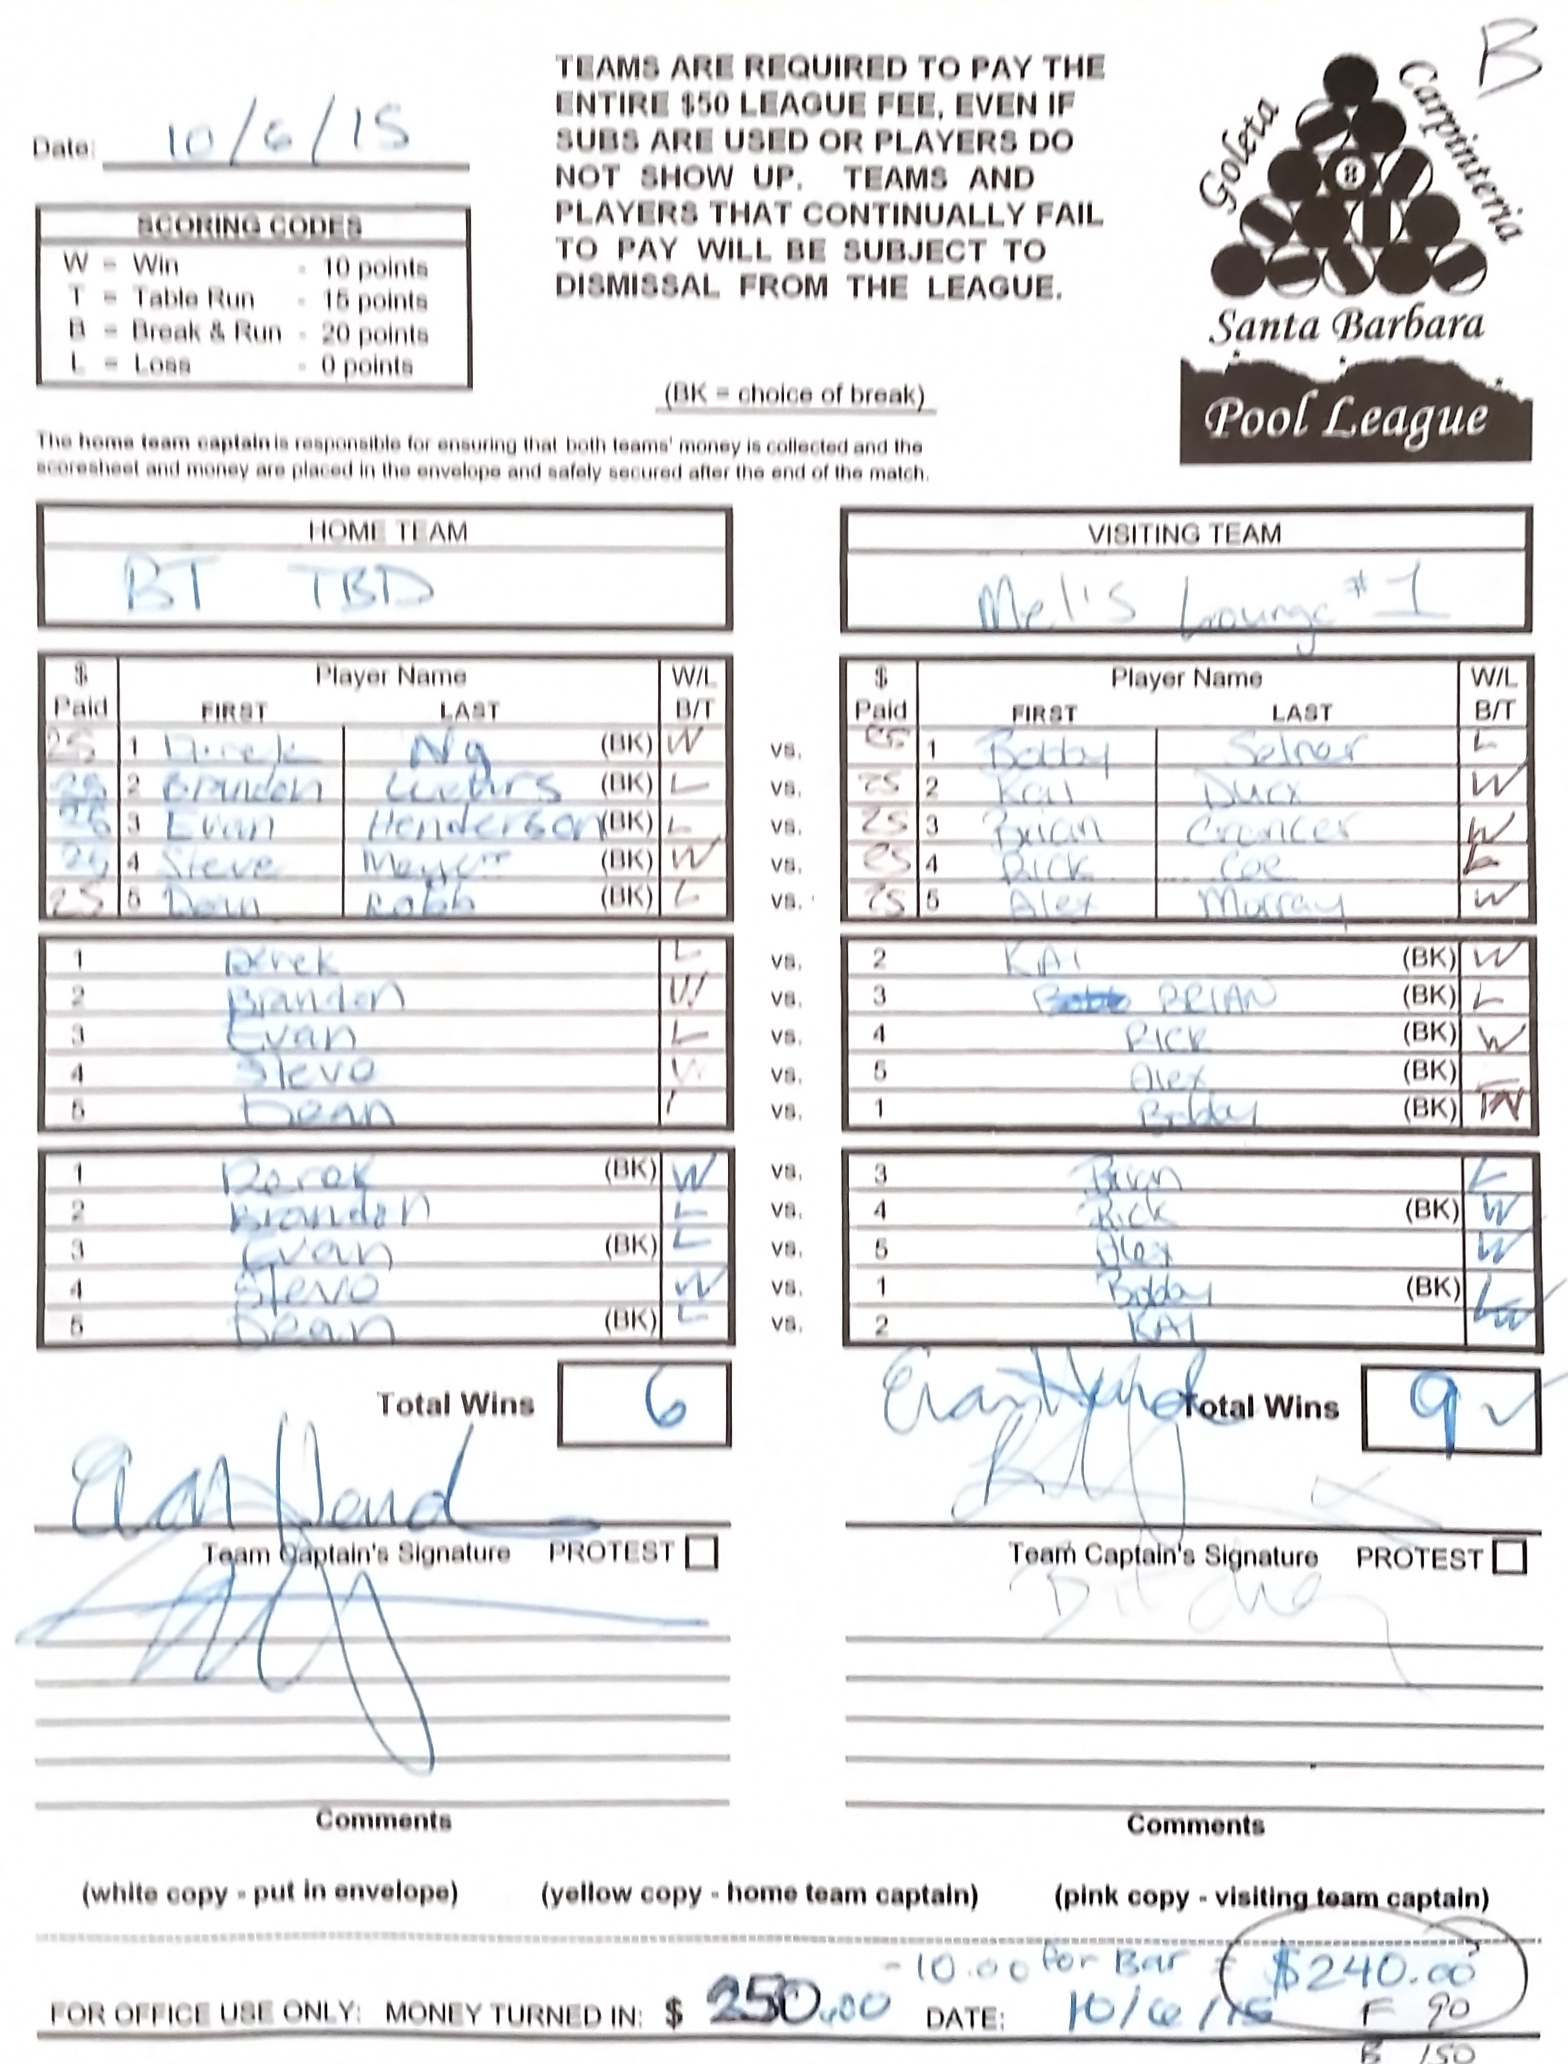 B
Date: 10/6/15
TEAMS ARE REQUIRED TO PAY THE
ENTIRE $50 LEAGUE FEE, EVEN IF
SUBS ARE USED OR PLAYERS DO
NOT SHOW UP. TEAMS AND
PLAYERS THAT CONTINUALLY FAIL
TO PAY WILL BE SUBJECT TO
DISMISSAL FROM THE LEAGUE.
Goleta
Carpinteria
8
Santa Barbara
Pool League
SCORING CODES
W = Win - 10 points
T = Table Run - 15 points
B = Break & Run - 20 points
L = Loss - 0 points
(BK = choice of break)
The home team captain is responsible for ensuring that both teams' money is collected and the
scoresheet and money are placed in the envelope and safely secured after the end of the match.
HOME TEAM VISITING TEAM
BT TBD Mel's Lounge #1
$ Player Name W/L $ Player Name W/L
Paid FIRST LAST B/T Paid FIRST LAST B/T
25 1 Derek Ng (BK) W vs. 25 1 Bobby Selner L
25 2 Brandon (BK) L vs. 25 2 Kai W
25 3 Evan Henderson (BK) L vs. 25 3 Brian W
25 4 Steve (BK) W vs. 25 4 Rick Coe L
25 5 Dean Robb (BK) L vs. 25 5 Alex Murray W
1 Derek L vs. 2 KAI (BK) W
2 Brandon W vs. 3 BRIAN (BK) L
3 Evan L vs. 4 Rick (BK) W
4 Steve W vs. 5 Alex (BK) L
5 Dean L vs. 1 Bobby (BK) W
1 Derek (BK) W vs. 3 Brian L
2 Brandon L vs. 4 Rick (BK) W
3 Evan (BK) L vs. 5 Alex W
4 Steve W vs. 1 Bobby (BK) L
5 Dean (BK) L vs. 2 KAI W
Total Wins 6 Total Wins 9
Team Captain's Signature PROTEST Team Captain's Signature PROTEST
Comments Comments
(white copy - put in envelope) (yellow copy - home team captain) (pink copy - visiting team captain)
- 10.00 For Bar = $240.00
FOR OFFICE USE ONLY: MONEY TURNED IN: $ 250.00 DATE: 10/6/15 F 90
B 150